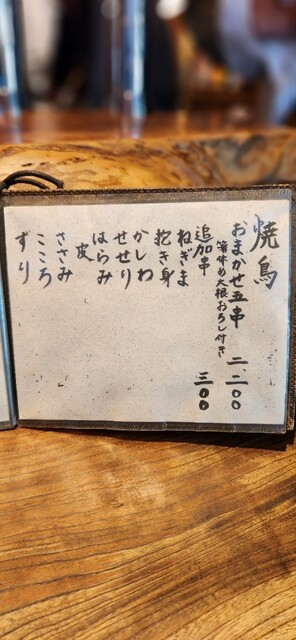 焼鳥
おまかせ五串 二、二〇〇
箸休め大根おろし付き
追加串 三〇〇
ねぎま
抱き身
かしわ
せせり
はらみ
皮
ささみ
こころ
ずり